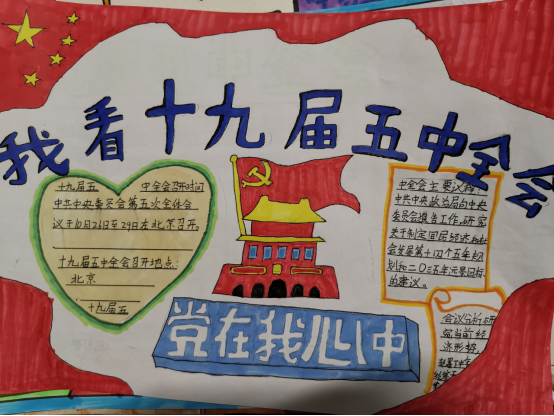 我看十九届五中全会
十九届五 中全会召开时间
中共中央委员会第五次全体会
议于10月26日至29日在北京召开。
十九届五中全会召开地点:
北京
十九届五
党在我心中
中全会主要议程
中共中央政治局向中央
委员会报告工作,研究
关于制定国民经济和社
会发展第十四个五年规
划和二〇三五年远景目标
的建议。
会议分析研
究当前经
济形势,